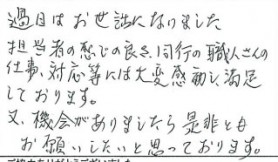 過日はお世話になりました
担当者の感じの良さ、同行の職人さんの
仕事、対応等には大変感動し、満足
しております。
又、機会がありましたら是非とも
お願いしたいと思っております。